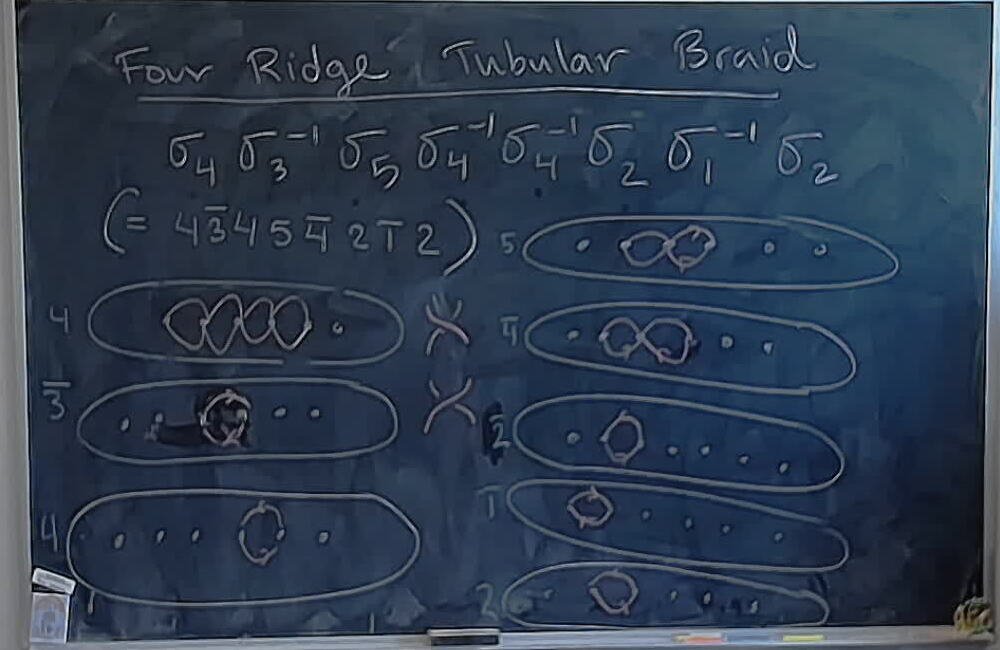 Four Ridge Tubular Braid
σ₄ σ₃⁻¹ σ₅ σ₄⁻¹ σ₄⁻¹ σ₂ σ₁⁻¹ σ₂
(= 4 3̄ 4 5 4̄ 2 1̄ 2)
4
3̄
4
5
4̄
2
1̄
2